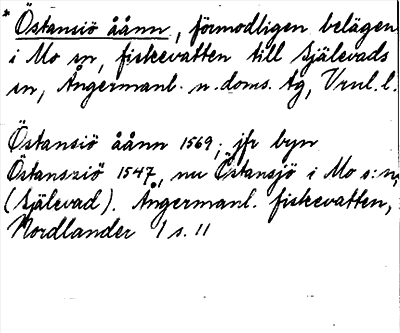 * Östansiö åånn, förmodligen belägen
i Mo sn, fiskevatten till Själevads
sn, Ångermanl. n. doms. tg, Vrnl. l.
Östansiö åånn 1569; jfr byn
Östansziö 1547, nu Östansjö i Mo s:n,
(Själevad). Ångermanl. fiskevatten,
Nordlander 1 s. 11